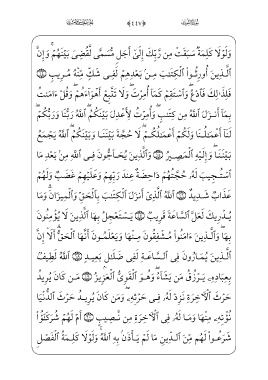 وَلَوْلَا كَلِمَةٌ سَبَقَتْ مِن رَّبِّكَ إِلَىٰ أَجَلٍ مُّسَمًّى لَّقُضِيَ بَيْنَهُمْ وَإِنَّ
الَّذِينَ أُورِثُوا الْكِتَابَ مِن بَعْدِهِمْ لَفِي شَكٍّ مِّنْهُ مُرِيبٍ
فَلِذَٰلِكَ فَادْعُ وَاسْتَقِمْ كَمَا أُمِرْتَ وَلَا تَتَّبِعْ أَهْوَاءَهُمْ وَقُلْ ءَامَنتُ
بِمَا أَنزَلَ اللَّهُ مِن كِتَابٍ وَأُمِرْتُ لِأَعْدِلَ بَيْنَكُمُ اللَّهُ رَبُّنَا وَرَبُّكُمْ
لَنَا أَعْمَالُنَا وَلَكُمْ أَعْمَالُكُمْ لَا حُجَّةَ بَيْنَنَا وَبَيْنَكُمُ اللَّهُ يَجْمَعُ
بَيْنَنَا وَإِلَيْهِ الْمَصِيرُ وَالَّذِينَ يُحَاجُّونَ فِي اللَّهِ مِن بَعْدِ مَا
اسْتُجِيبَ لَهُ حُجَّتُهُمْ دَاحِضَةٌ عِندَ رَبِّهِمْ وَعَلَيْهِمْ غَضَبٌ وَلَهُمْ
عَذَابٌ شَدِيدٌ اللَّهُ الَّذِي أَنزَلَ الْكِتَابَ بِالْحَقِّ وَالْمِيزَانَ وَمَا
يُدْرِيكَ لَعَلَّ السَّاعَةَ قَرِيبٌ يَسْتَعْجِلُ بِهَا الَّذِينَ لَا يُؤْمِنُونَ
بِهَا وَالَّذِينَ ءَامَنُوا مُشْفِقُونَ مِنْهَا وَيَعْلَمُونَ أَنَّهَا الْحَقُّ أَلَا إِنَّ
الَّذِينَ يُمَارُونَ فِي السَّاعَةِ لَفِي ضَلَالٍ بَعِيدٍ اللَّهُ لَطِيفٌ
بِعِبَادِهِ يَرْزُقُ مَن يَشَاءُ وَهُوَ الْقَوِيُّ الْعَزِيزُ مَن كَانَ يُرِيدُ
حَرْثَ الْآخِرَةِ نَزِدْ لَهُ فِي حَرْثِهِ وَمَن كَانَ يُرِيدُ حَرْثَ الدُّنْيَا
نُؤْتِهِ مِنْهَا وَمَا لَهُ فِي الْآخِرَةِ مِن نَّصِيبٍ أَمْ لَهُمْ شُرَكَاءُ
شَرَعُوا لَهُم مِّنَ الدِّينِ مَا لَمْ يَأْذَن بِهِ اللَّهُ وَلَوْلَا كَلِمَةُ الْفَصْلِ